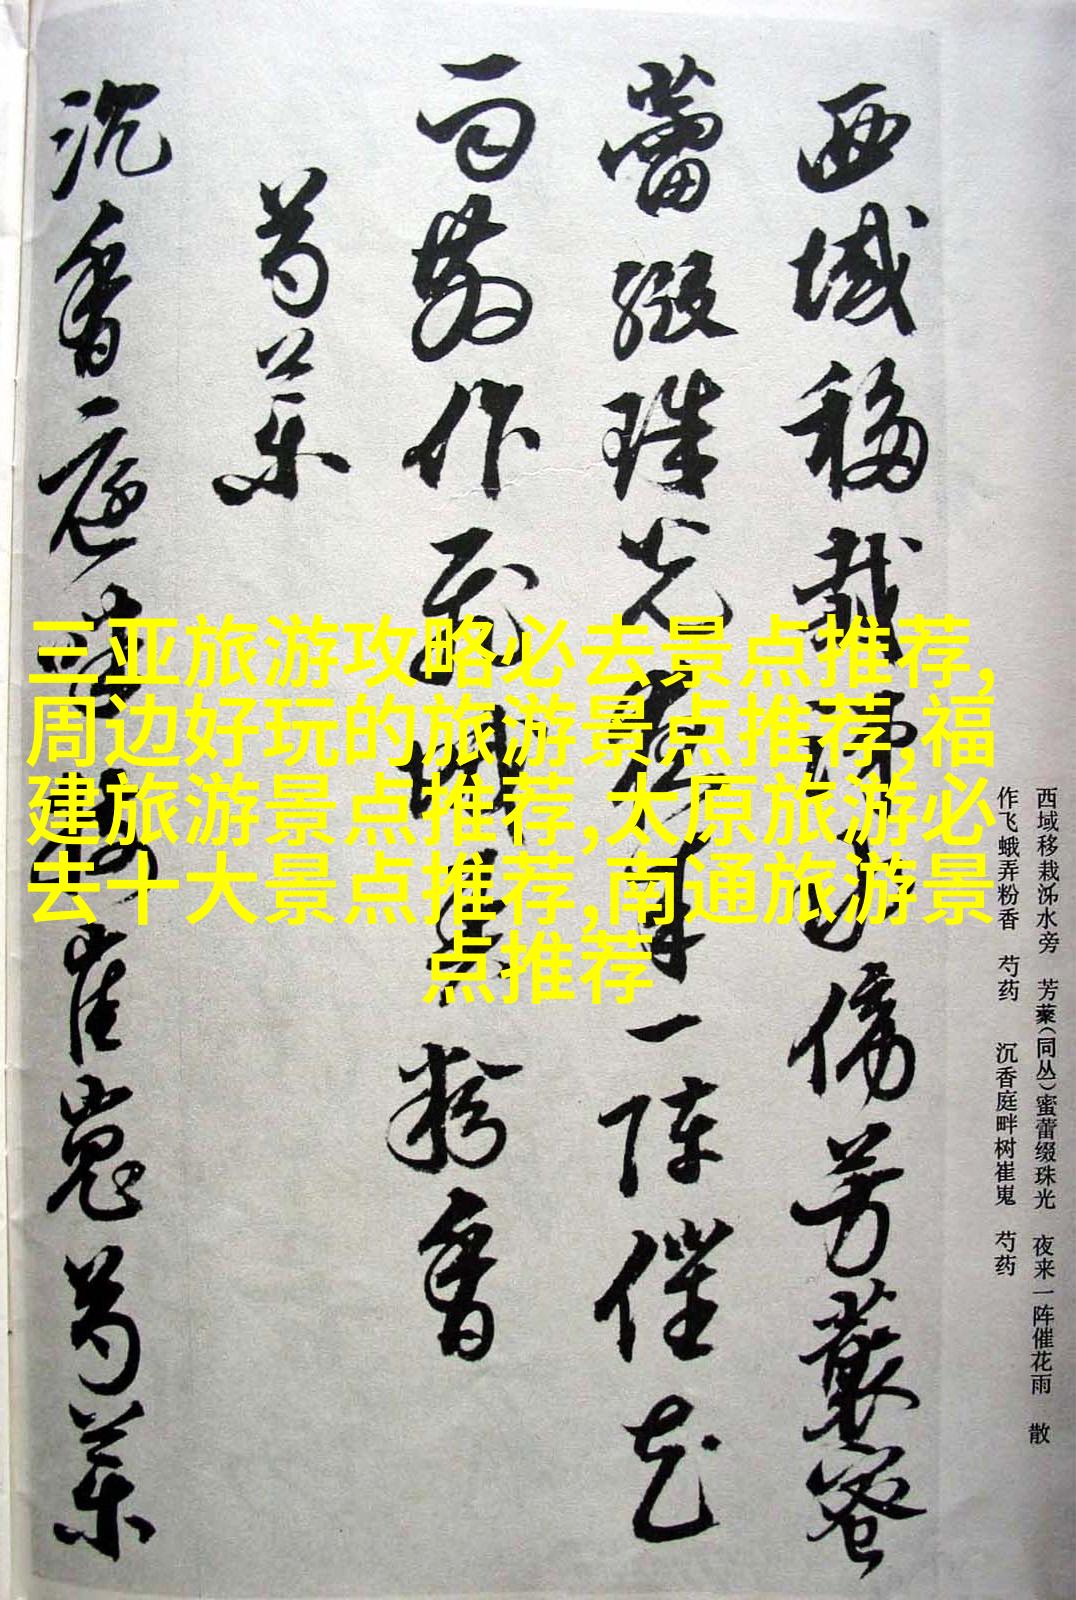 西域移栽泲水傍芳藂蜜
蕾綴珠光夜来一陣催花
雨散作飛蛾弄粉香
芍藥
沉香庭畔樹崔嵬芍藥
西域移栽泲水旁 芳藂(同丛)蜜蕾缀珠光 夜来一阵催花雨 散
作飞蛾弄粉香 芍药 沉香庭畔树崔嵬 芍药
三亚旅游攻略必去景点推荐,
周边好玩的旅游景点推荐,福
建旅游景点推荐,太原旅游必
去十大景点推荐,南通旅游景
点推荐